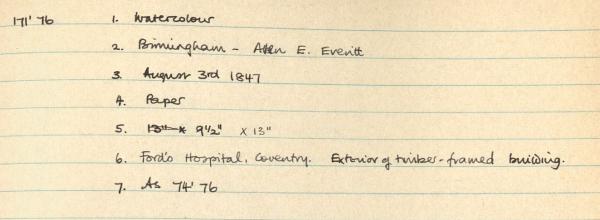 171'76 1. Watercolour
2. Birmingham - Allen E. Everitt
3. August 3rd 1847
4. Paper
5. 13" x 9½" x 13"
6. Ford's Hospital, Coventry. Exterior of timber-framed building.
7. As 74'76